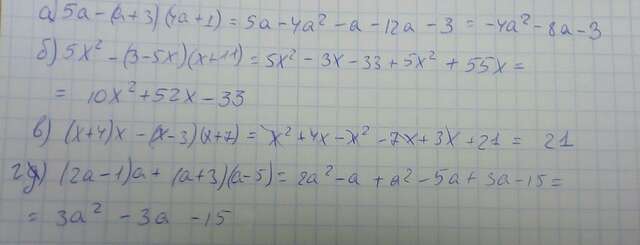 а) 5a - (a+3)(4a+1) = 5a - 4a² - a - 12a - 3 = -4a² - 8a - 3
б) 5x² - (3-5x)(x+11) = 5x² - 3x - 33 + 5x² + 55x =
= 10x² + 52x - 33
в) (x+4)x - (x-3)(x+7) = x² + 4x - x² - 7x + 3x + 21 = 21
г) (2a-1)a + (a+3)(a-5) = 2a² - a + a² - 5a + 3a - 15 =
= 3a² - 3a - 15